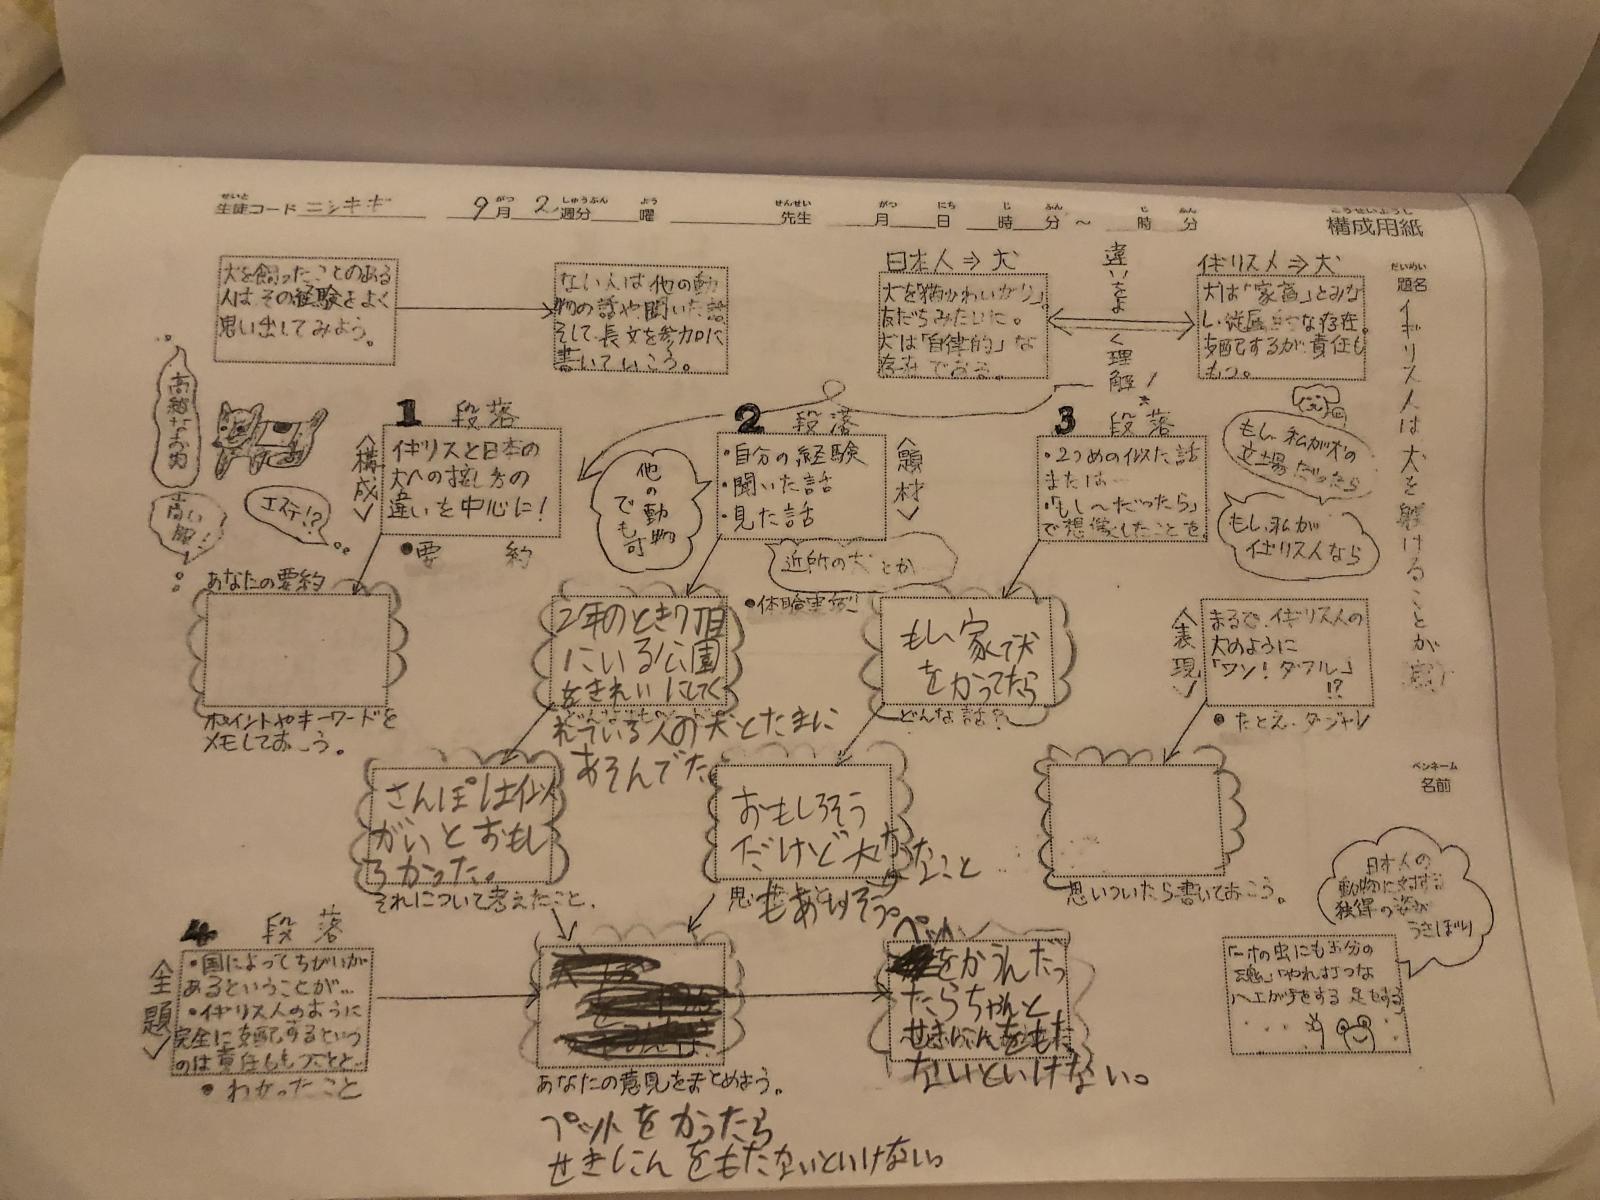 構成用紙
生徒コード ニシキギ 9月 2週分 曜 先生 月 日 時 分 ～ 時 分
題名 イギリス人は犬を躾けることが
ペンネーム
名前
犬を飼ったことのある
人は、その経験をよく
思い出してみよう。
ない人は他の動
物の話や、聞いた話
そして、長文を参考に
書いていこう。
日本人⇒犬
犬を「猫かわいがり」。
友だちみたいに。
犬は「自律的」な
存在である。
違いをよく理解！
イギリス人⇒犬
犬は「家畜」とみな
し、従属的な存在。
支配するが、責任も
もつ。
高級なお肉
高い服！
エステ!?
1 段落
〈構成〉
イギリスと日本の
犬への接し方の
違いを中心に！
●要約
他の動物
でも可
2 段落
〈題材〉
・自分の経験
・聞いた話
・見た話
近所の犬とか
●体験実例
3 段落
・2つめの似た話
または…
・「もし～だったら」
で想像したことを。
もし、私が犬の
立場だったら
もし、私が
イギリス人なら
あなたの要約
ポイントやキーワードを
メモしておこう。
2年のとき7丁目
にいる公園
をきれいにしてく
れている人の犬とたまに
あそんでた。
もし、家で犬
をかってたら
どんな話？
〈表現〉
まるで、イギリス人の
犬のように
「ワン！ダフル」
!?
●たとえ・ダジャレ
さんぽは似
がいとおもし
ろかった。
それについて考えたこと。
おもしろそう
だけど大
たなこと
もありそう。
思いついたら書いておこう。
日本人の
動物に対する
独得の姿が
うきぼり
「一寸の虫にも五分の
魂」「やれ打つな
ハエが手をする 足をする」
4 段落
〈主題〉
・国によってちがいが
あるということが…
・イギリス人のように
完全に支配するという
のは責任ももつことと…
●わかったこと
あなたの意見をまとめよう。
ペットをかったら
せきにんをもたないといけない。
ペット
をかうんだっ
たらちゃんと
せきにんをもた
ないといけない。